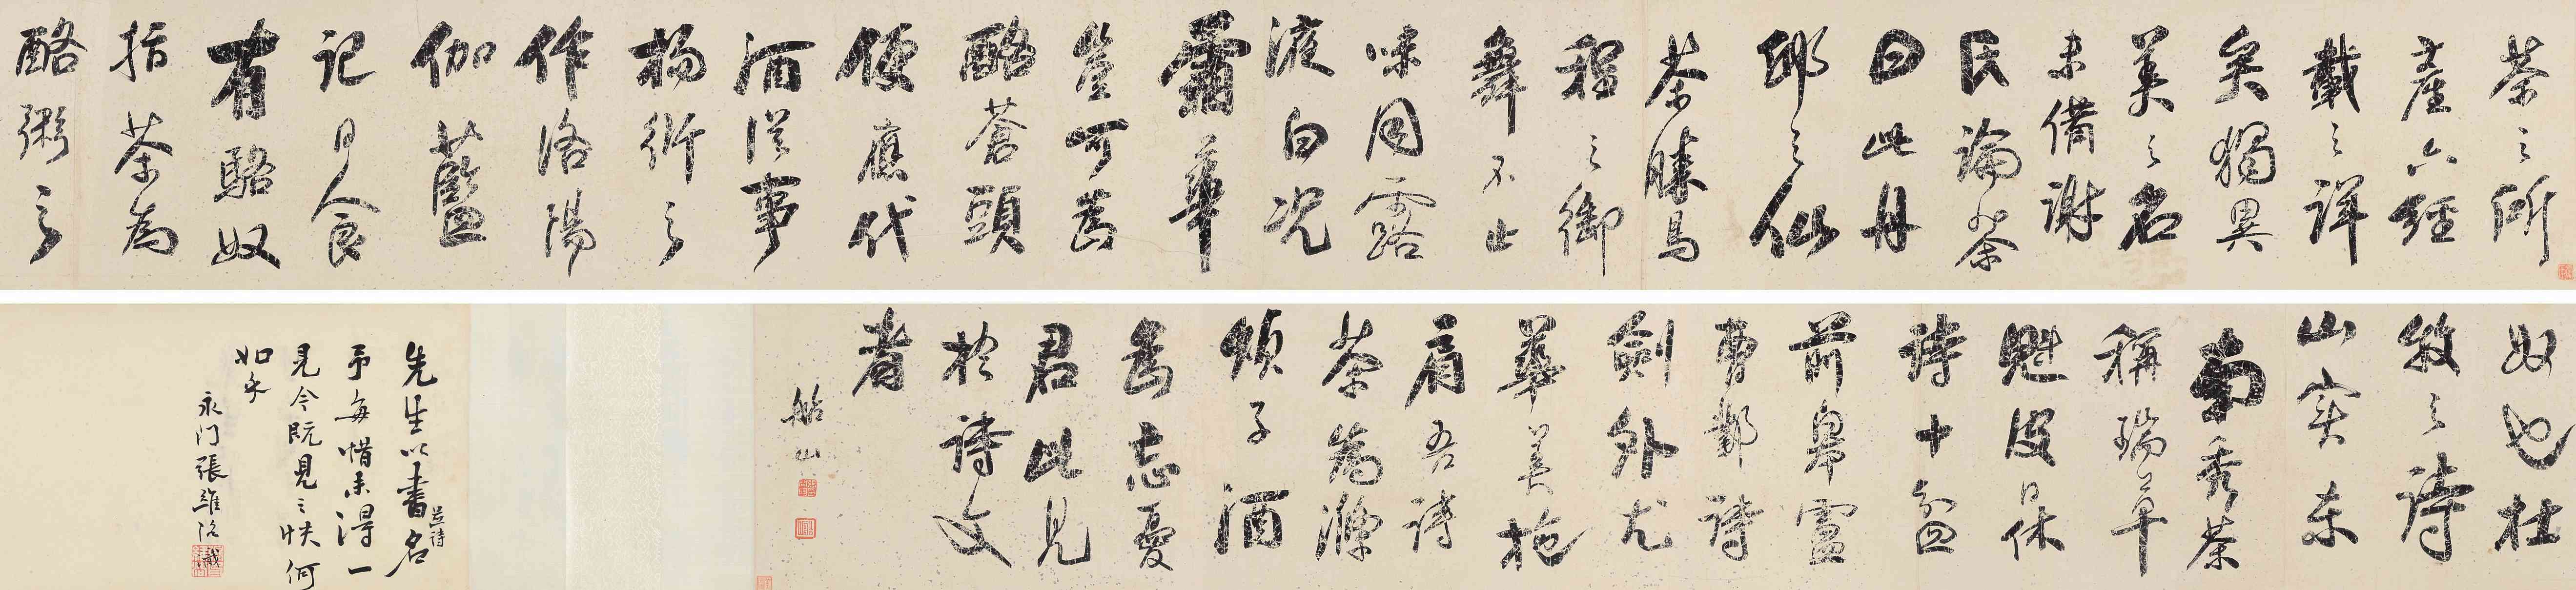 茶之所
產六經
載之詳
矣獨異
美之名
未備謝
氏論茶
曰此丹
邱之仙
茶勝烏
程之御
舛不止
味同露
液白況
霜華
豈可為
酪蒼頭
便應代
酒從事
楊衒之
作洛陽
伽藍
記曰食
有酪奴
指茶為
酪粥之
奴也杜
牧之詩
山實東
南秀茶
稱瑞草
魁皮日休
詩十盌
前皋盧
曹鄴詩
劍外尤
華美施
肩吾詩
茶為滌
煩子酒
為忘憂
君此見
於詩文
者
船山
先生以書並詩名
予每惜未得一
見今既見之快何
如乎
永门張維